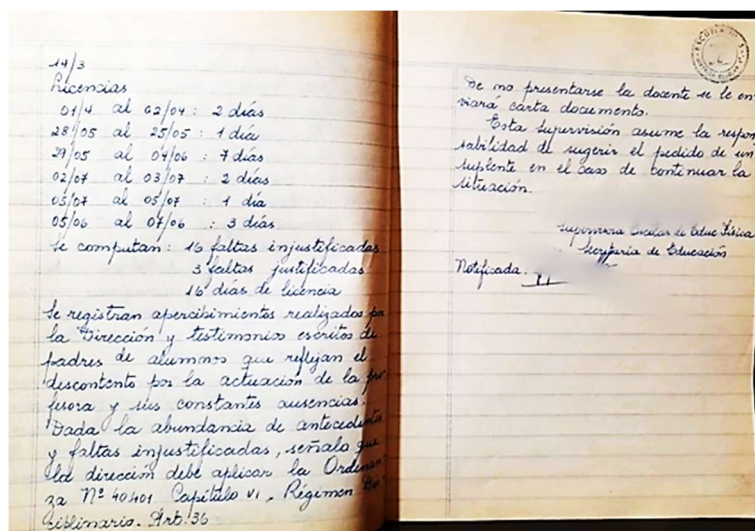 14/3
Licencias
01/4 al 02/04: 2 días
28/05 al 25/05: 1 día
29/05 al 04/06: 7 días
02/07 al 03/07: 2 días
05/07 al 05/07: 1 día
05/06 al 07/06: 3 días
Se computan: 16 faltas injustificadas
3 faltas justificadas
16 días de licencia
Se registran apercibimientos realizados por
la Dirección y testimonios escritos de
padres de alumnos que reflejan el
descontento por la actuación de la pro
fesora y sus constantes ausencias.
Dada la abundancia de antecedentes
y faltas injustificadas, señalo que
la dirección debe aplicar la Ordenan
za Nº 40401 Capítulo VI - Régimen Dis
ciplinario. Art. 36
ESCUELA
De no presentarse la docente se le en
viará carta documento.
Esta supervisión asume la respon
sabilidad de sugerir el pedido de un
suplente en el caso de continuar la
situación.
Supervisora Escolar de Educ Física
Secretaría de Educación
Notificada: